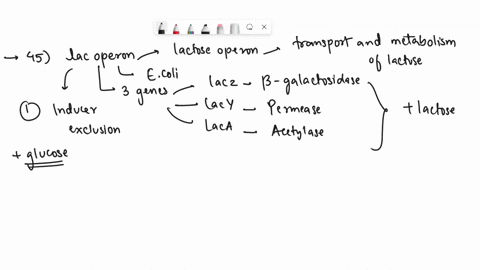 → 45) lac operon → lactose operon → transport and metabolism of lactose
E.coli
3 genes
lacz - β-galactosidase
LacY - Permease
LacA - Acetylase
+ lactose
① Inducer exclusion
+ glucose